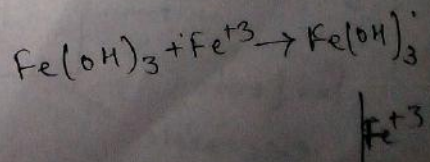 Fe(OH)₃ + Fe⁺³ → Fe(OH)₃
|Fe⁺³